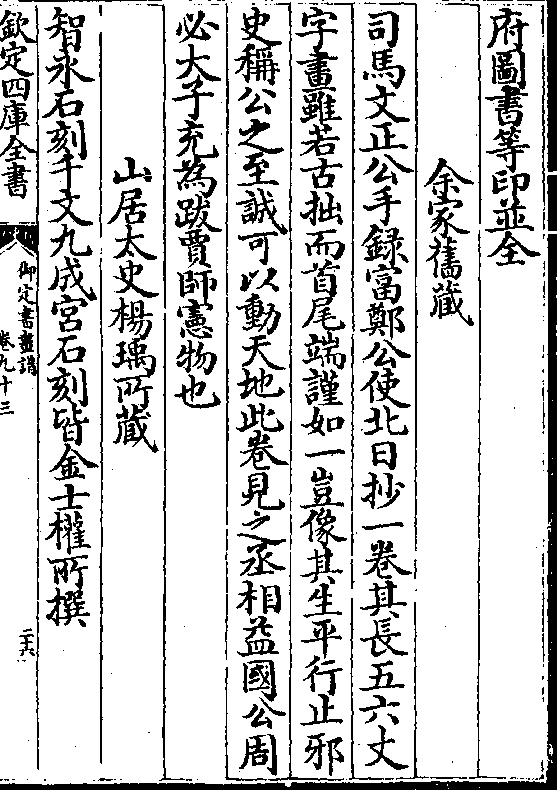 府圖書等印並全
余家舊藏
司馬文正公手錄富鄭公使北日抄一卷其長五六丈
字畫雖若古拙而首尾端謹如一豈像其生平行止邪
史稱公之至誠可以動天地此卷見之丞相益國公周
必大子充為跋賈師憲物也
山居太史楊瑀所藏
智永石刻千文九成宮石刻皆金士權所撰
欽定四庫全書
御定書畫譜
卷九十三
二十六